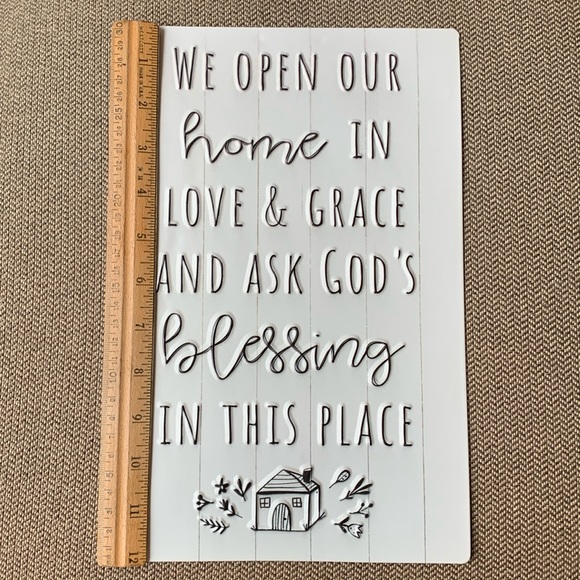 WE OPEN OUR
home IN
LOVE & GRACE
AND ASK GOD'S
blessing
IN THIS PLACE
1
2
3
4
5
6
7
8
9
10
11
12
30